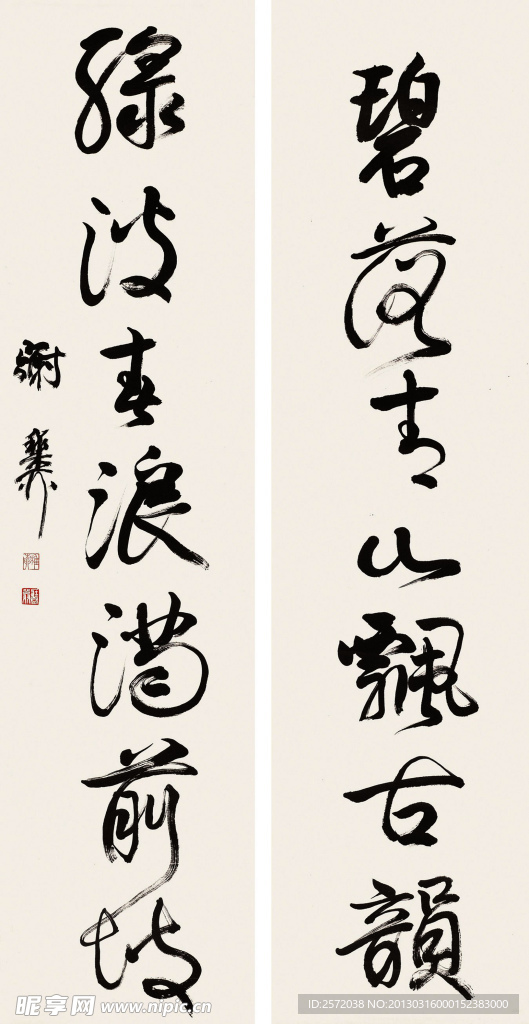 碧落青山飄古韻
綠波春浪滿前陂
謝稚
昵享网 www.nipic.cn
ID:2572038 NO:20130316000152383000